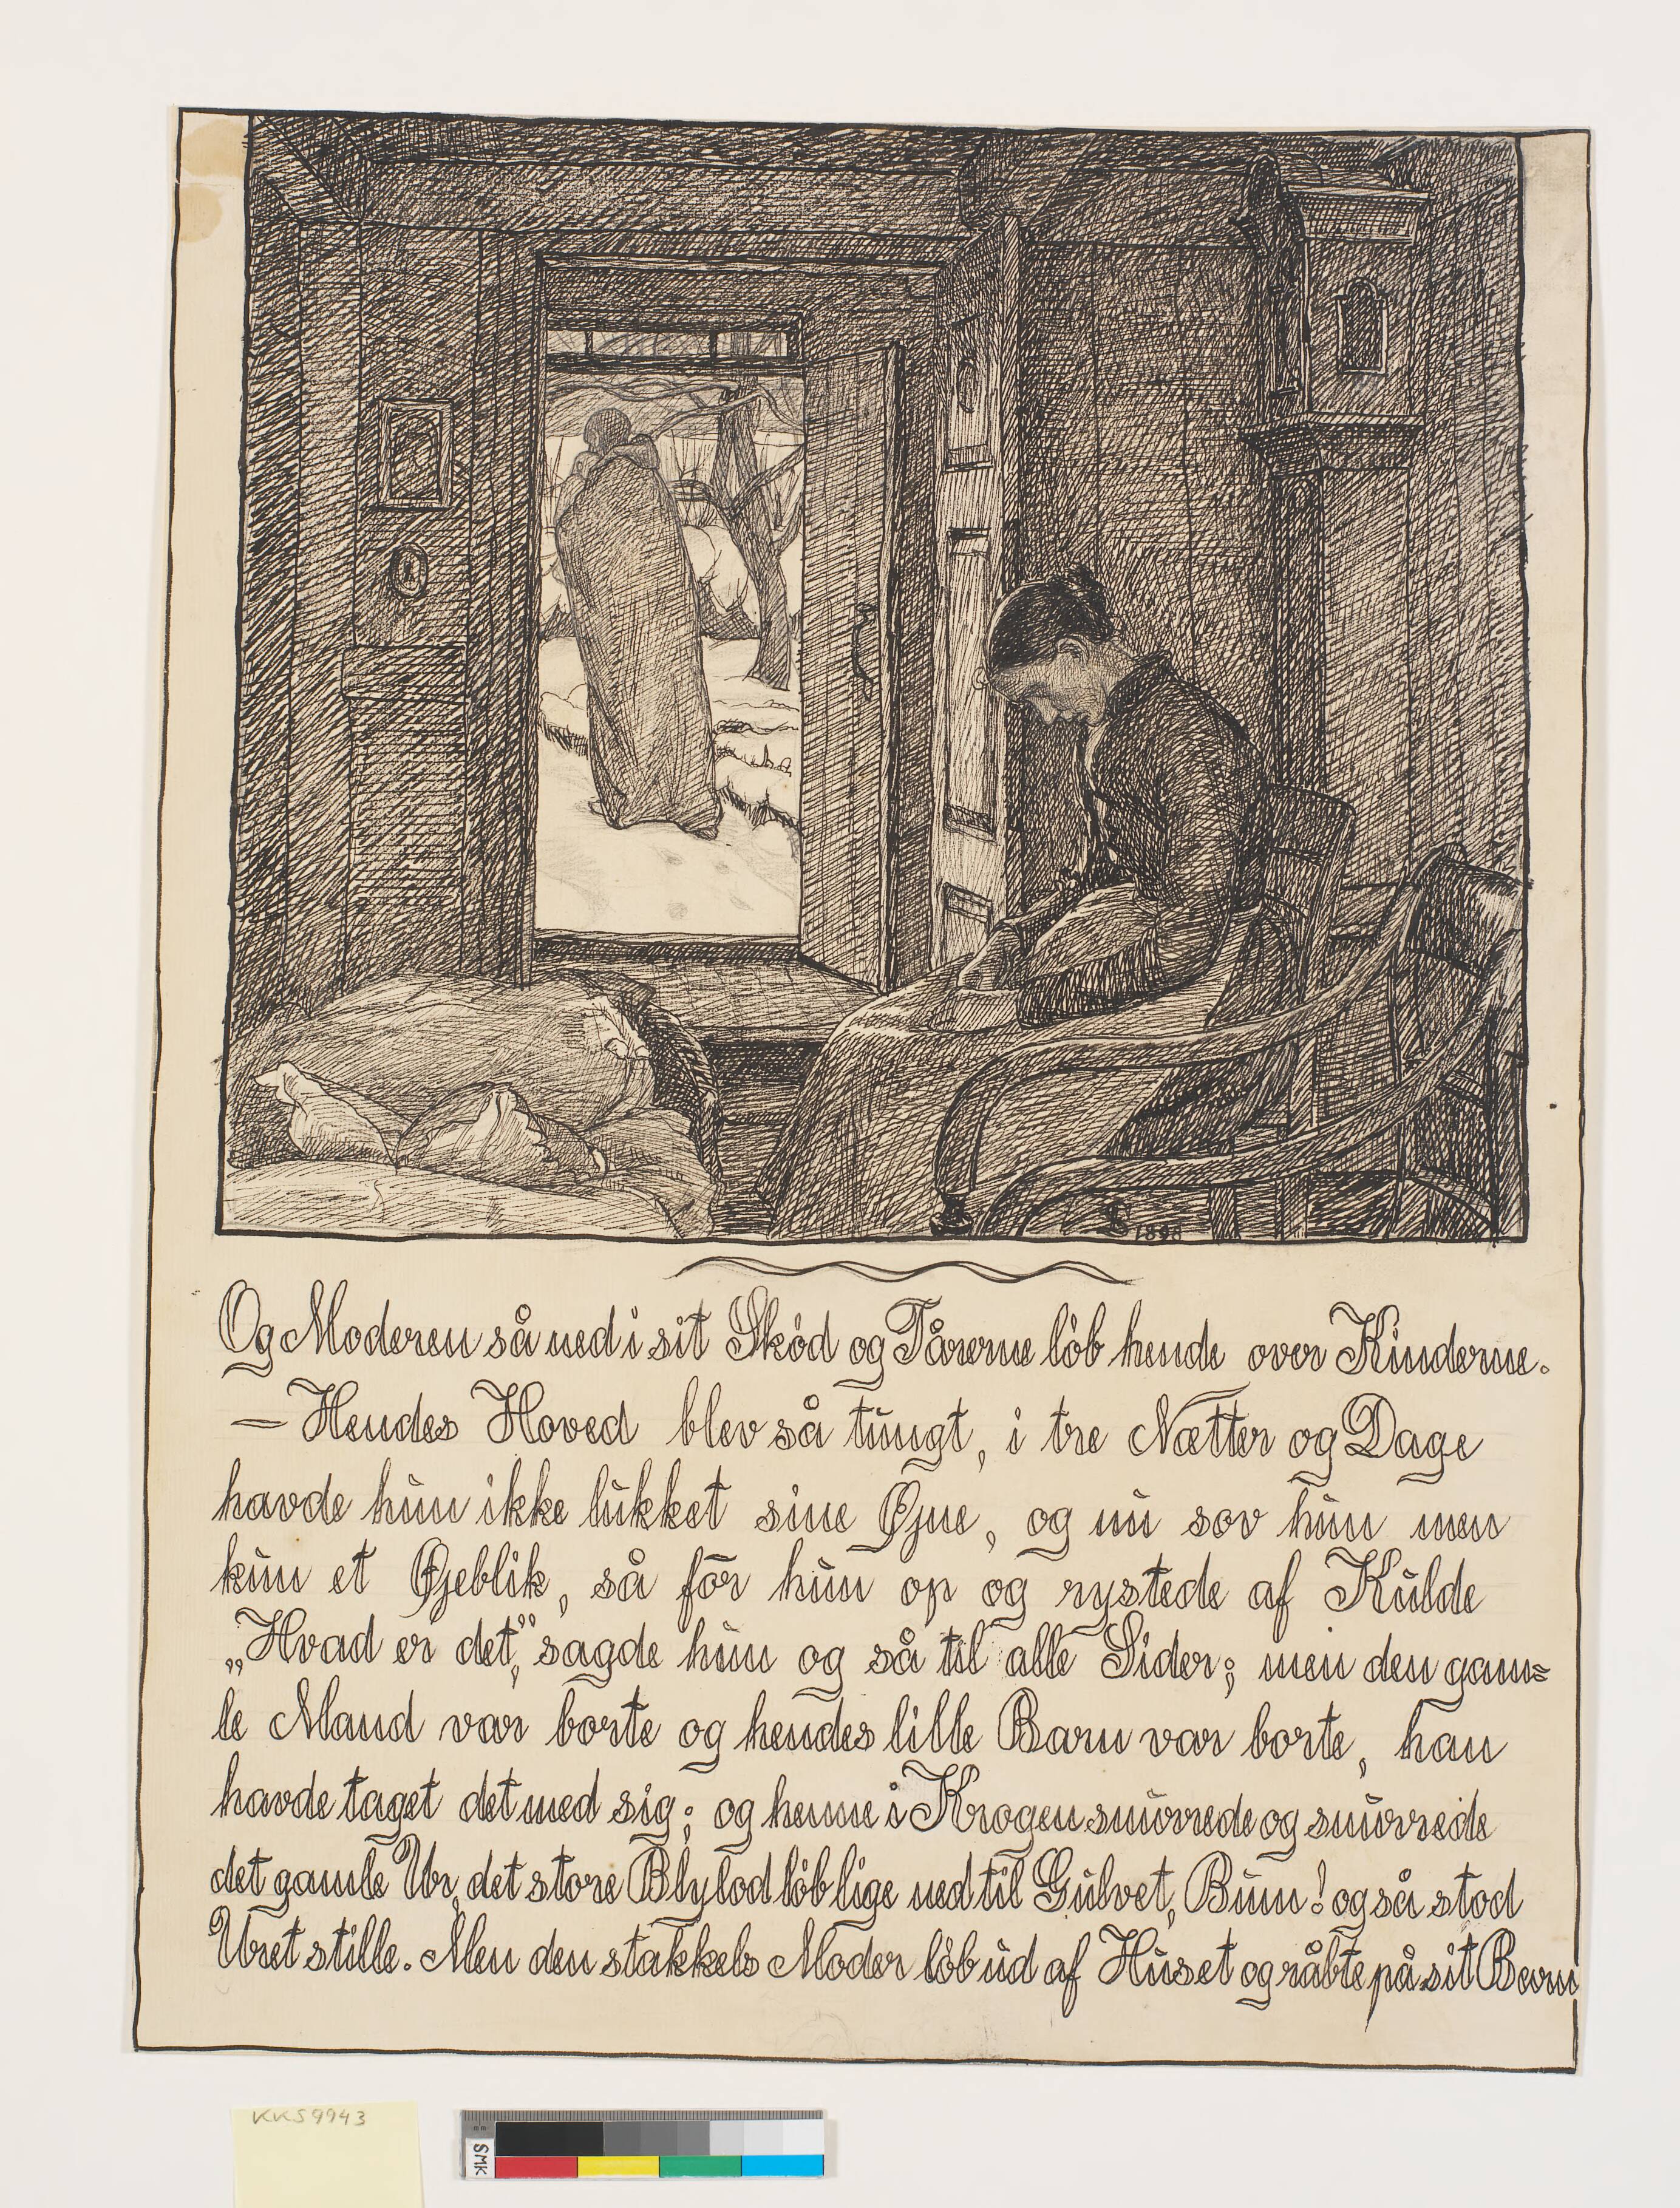 1898
Og Moderen så ned i sit Skød og Tårerne løb hende over Kinderne.
— Hendes Hoved blev så tungt, i tre Nætter og Dage
havde hun ikke lukket sine Øjne, og nu sov hun men
kun et Øjeblik, så fór hun op og rystede af Kulde
„Hvad er det”, sagde hun og så til alle Sider; men den gam=
le Mand var borte og hendes lille Barn var borte, han
havde taget det med sig; og henne i Krogen snurrede og snurrede
det gamle Ur, det store Blylod løb lige ned til Gulvet, Bum! og så stod
Uret stille. Men den stakkels Moder løb ud af Huset og råbte på sit Barn
KKS9943
SMK
mm